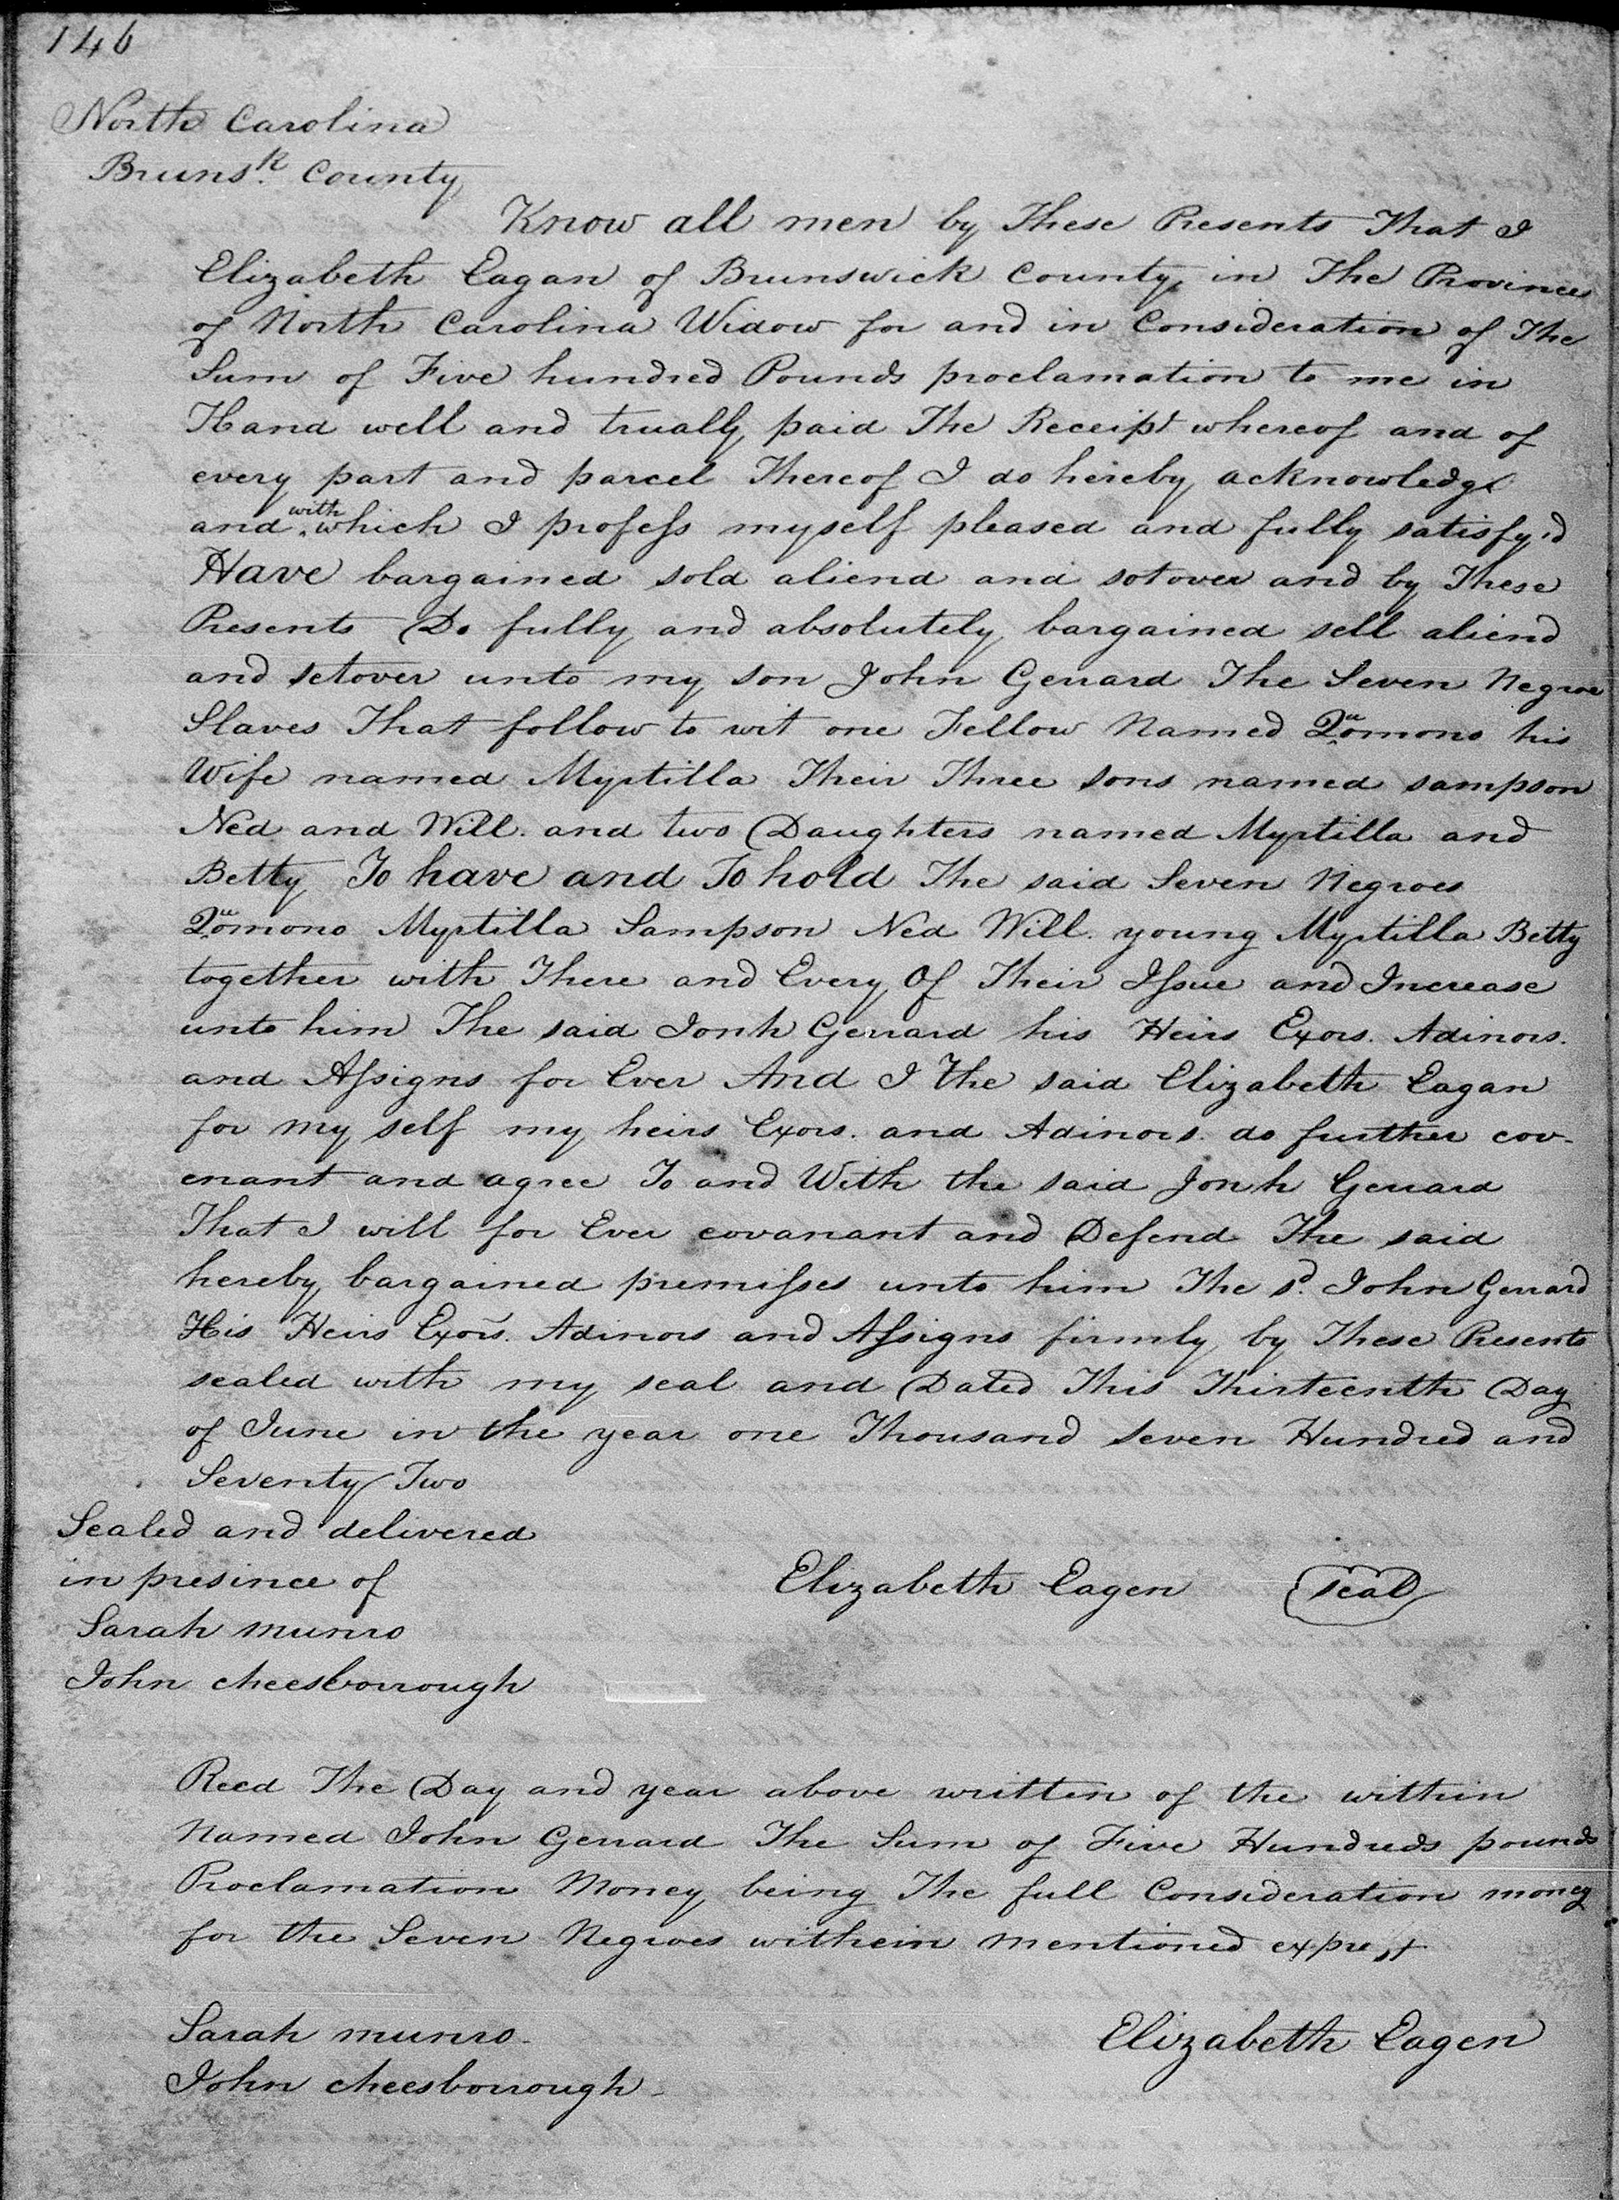 146
North Carolina
Brunsk. County
Know all men by These Presents That I
Elizabeth Eagan of Brunswick County in The Province
of North Carolina Widow for and in Consideration of The
Sum of Five hundred Pounds proclamation to me in
Hand well and trually paid The Receipt whereof and of
every part and parcel Thereof I do hereby acknowledge
and with which I profess myself pleased and fully satisfy'd
Have bargained sold aliend and sotover and by These
Presents Do fully and absolutely bargained sell aliend
and setover unto my son John Gerrard The Seven Negroe
Slaves That follow to wit one Fellow Named Quomono his
Wife named Myrtilla Their Three sons named sampson
Ned and Will. and two Daughters named Myrtilla and
Betty To have and To hold The said Seven Negroes
Quomono Myrtilla Sampson Ned Will. young Myrtilla Betty
together with There and Every Of Their Issue and Increase
unto him The said Jonh Gerrard his Heirs Exors. Adinors.
and Assigns for Ever And I The said Elizabeth Eagan
for my self my heirs Exors. and Adinors. do further cov-
enant and agree To and With the said Jonh Gerrard
That I will for Ever covanant and Defend The said
hereby bargained premisses unto him The sd. John Gerrard
His Heirs Exors. Adinors and Assigns firmly by These Presents
sealed with my seal and Dated This Thirteenth Day
of June in the year one Thousand Seven Hundred and
Seventy Two
Sealed and delivered
in presince of
Elizabeth Eagen seal
Sarah munro
John cheesborrough
Recd The Day and year above written of the within
Named John Gerrard The Sum of Five Hundreds pounds
Proclamation Money being The full Consideration money
for the Seven Negroes withein mentioned exprest
Sarah munro. Elizabeth Eagen
John cheesborrough.